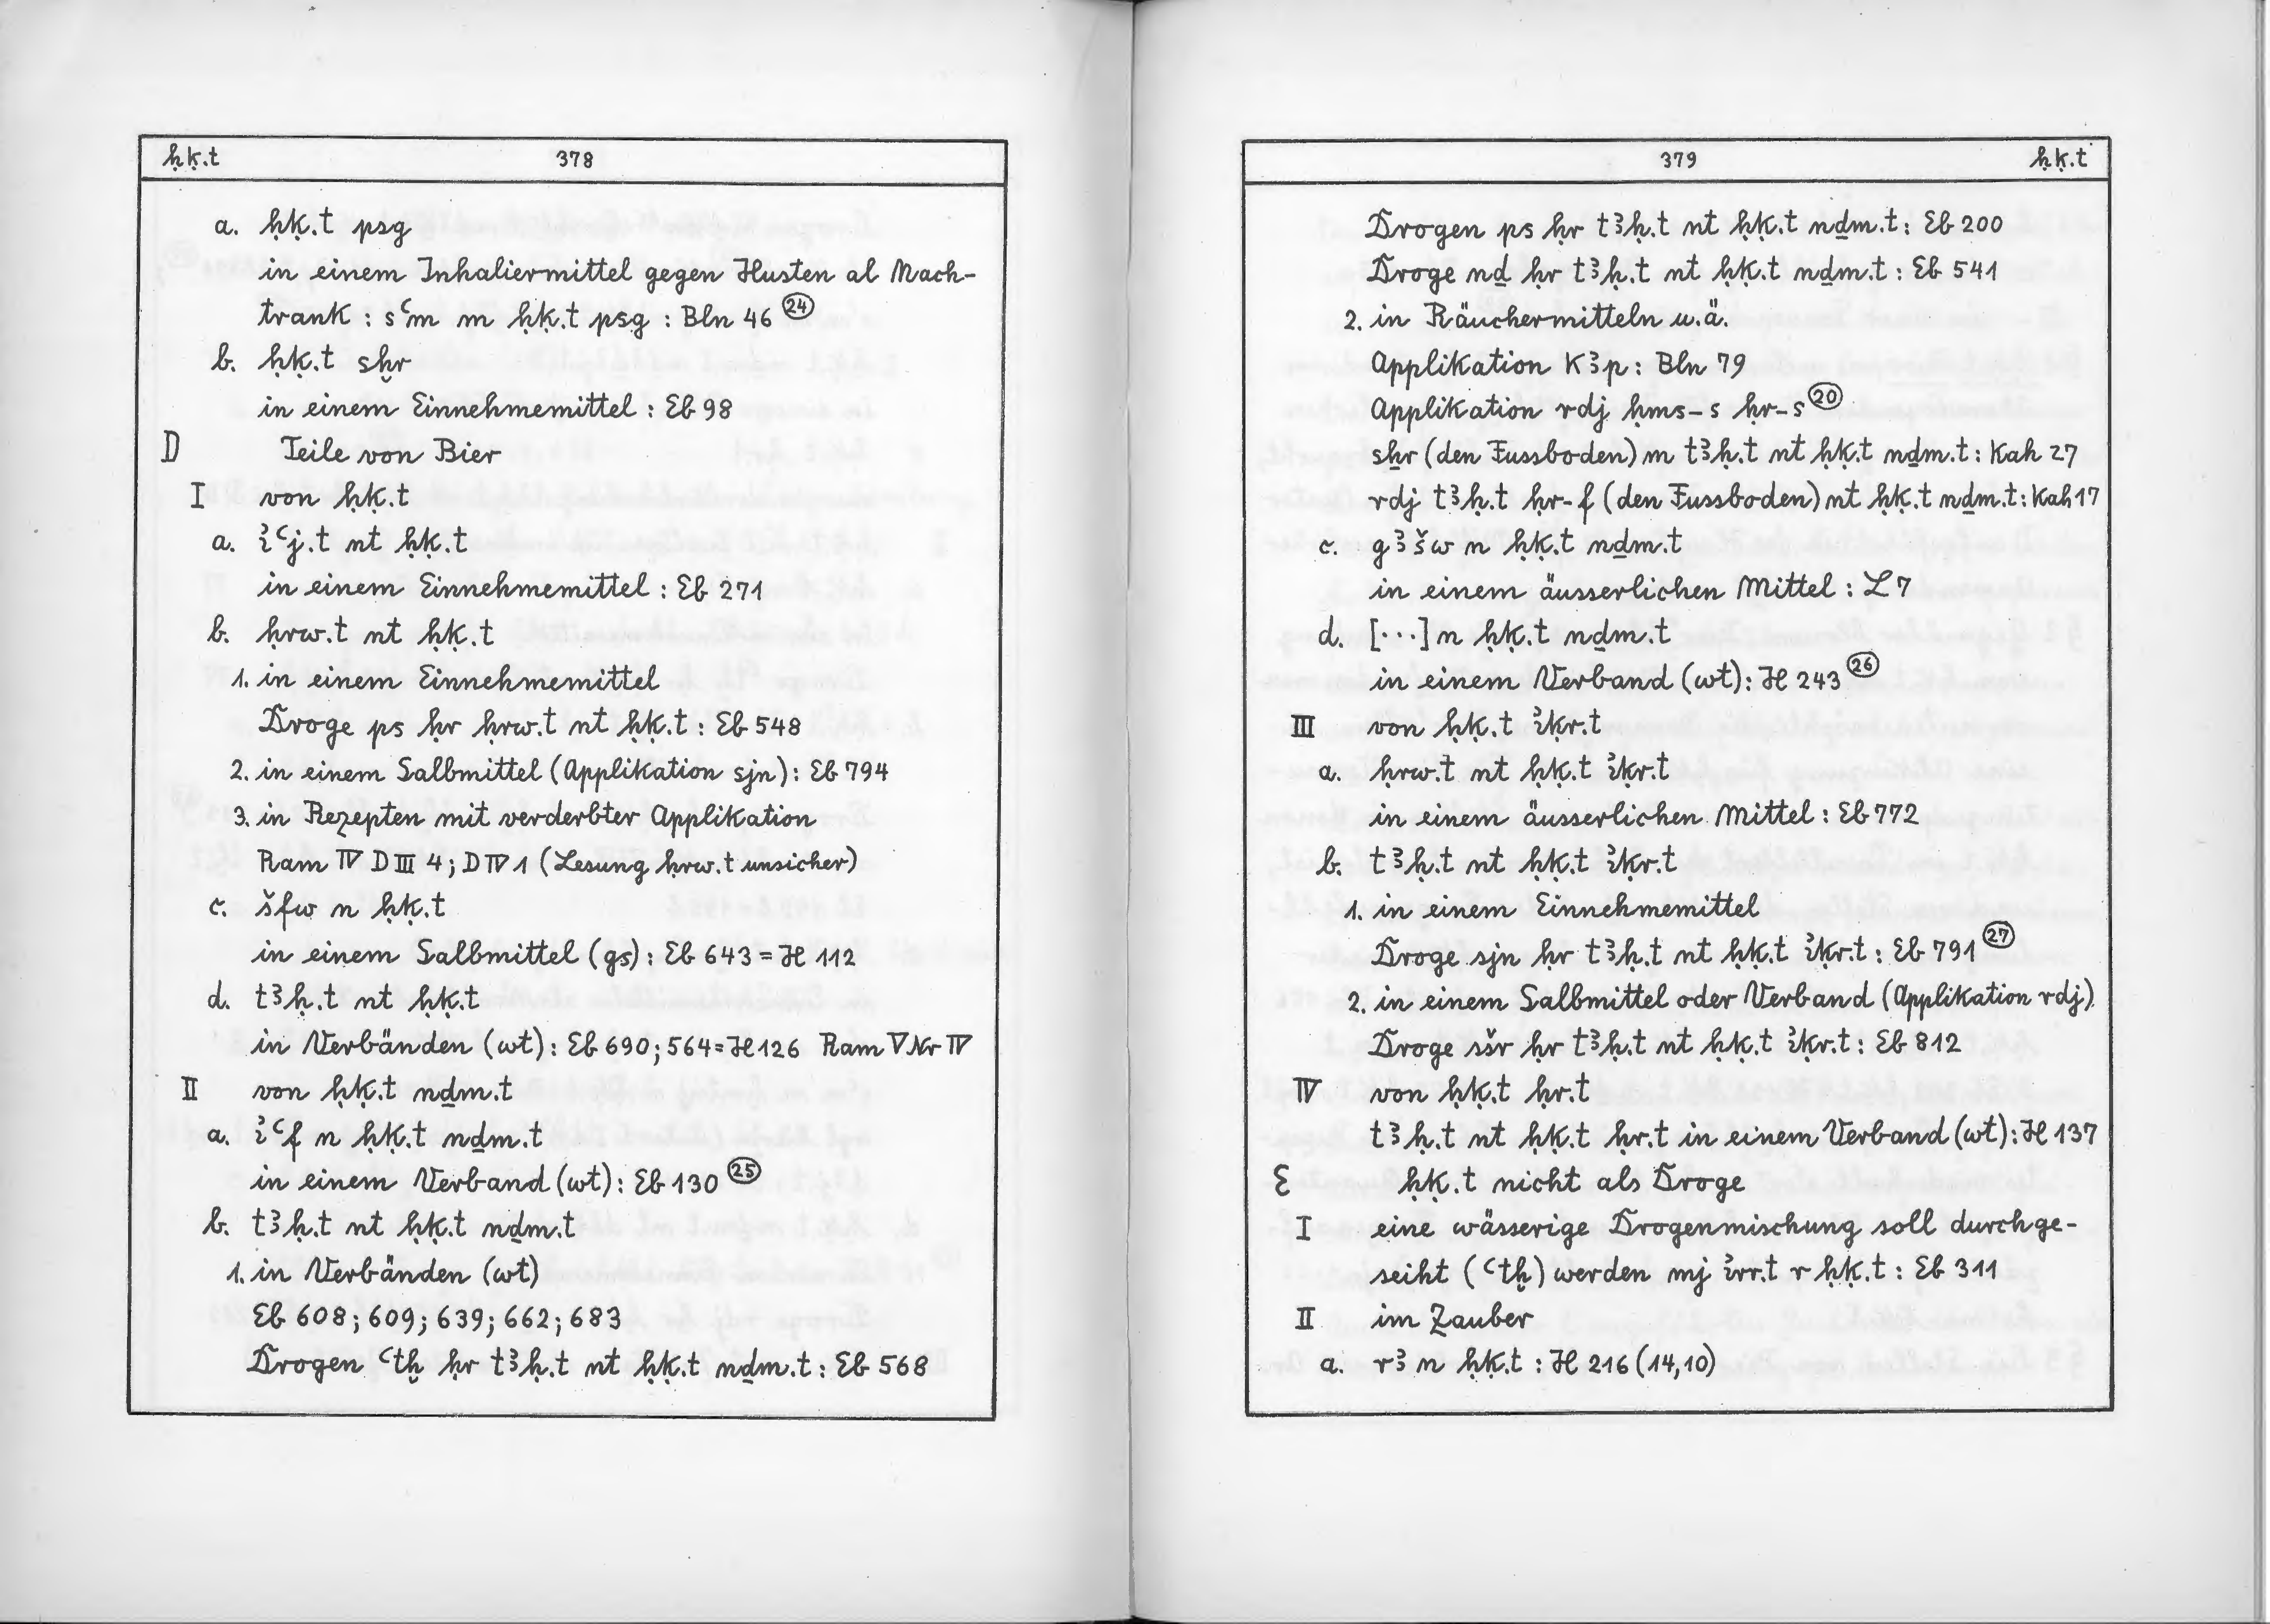 ḥḳ.t 378
a. ḥḳ.t psg
in einem Inhaliermittel gegen Husten al Nach-
trank : sꜥm m ḥḳ.t psg : Bln 46 ㉔
b. ḥḳ.t sḫr
in einem Einnehmemittel : Eb 98
D Teile von Bier
I von ḥḳ.t
a. ꞽꜥj.t nt ḥḳ.t
in einem Einnehmemittel : Eb 271
b. ḥrw.t nt ḥḳ.t
1. in einem Einnehmemittel
Droge ps ḥr ḥrw.t nt ḥḳ.t : Eb 548
2. in einem Salbmittel (Applikation sjn) : Eb 794
3. in Rezepten mit verderbter Applikation
Ram IV D III 4 ; D IV 1 (Lesung ḥrw.t unsicher)
c. šfw n ḥḳ.t
in einem Salbmittel (gs) : Eb 643 = H 112
d. tꜣḥ.t nt ḥḳ.t
in Verbänden (wt) : Eb 690 ; 564 = H 126 Ram V Nr IV
II von ḥḳ.t nḏm.t
a. ꞽꜥf n ḥḳ.t nḏm.t
in einem Verband (wt) : Eb 130 ㉕
b. tꜣḥ.t nt ḥḳ.t nḏm.t
1. in Verbänden (wt)
Eb 608 ; 609 ; 639 ; 662 ; 683
Drogen ꜥtḫ ḥr tꜣḥ.t nt ḥḳ.t nḏm.t : Eb 568
379 ḥḳ.t
Drogen ps ḥr tꜣḥ.t nt ḥḳ.t nḏm.t : Eb 200
Droge nḏ ḥr tꜣḥ.t nt ḥḳ.t nḏm.t : Eb 541
2. in Räuchermitteln u.ä.
Applikation kꜣp : Bln 79
Applikation rdj ḥms-s ḥr-s ⑳
sẖr (den Fussboden) m tꜣḥ.t nt ḥḳ.t nḏm.t : Kah 27
rdj tꜣḥ.t ḥr-f (den Fussboden) nt ḥḳ.t nḏm.t : Kah 17
c. gꜣšw n ḥḳ.t nḏm.t
in einem äusserlichen Mittel : L 7
d. [...] n ḥḳ.t nḏm.t
in einem Verband (wt) : H 243 ㉖
III von ḥḳ.t ꞽḳr.t
a. ḥrw.t nt ḥḳ.t ꞽḳr.t
in einem äusserlichen Mittel : Eb 772
b. tꜣḥ.t nt ḥḳ.t ꞽḳr.t
1. in einem Einnehmemittel
Droge sjn ḥr tꜣḥ.t nt ḥḳ.t ꞽḳr.t : Eb 791 ㉗
2. in einem Salbmittel oder Verband (Applikation rdj)
Droge sšr ḥr tꜣḥ.t nt ḥḳ.t ꞽḳr.t : Eb 812
IV von ḥḳ.t ḥr.t
tꜣḥ.t nt ḥḳ.t ḥr.t in einem Verband (wt) : H 137
E ḥḳ.t nicht als Droge
I eine wässerige Drogenmischung soll durchge-
seiht (ꜥtḫ) werden mj ꞽrr.t r ḥḳ.t : Eb 311
II im Zauber
a. rꜣ n ḥḳ.t : H 216 (14,10)